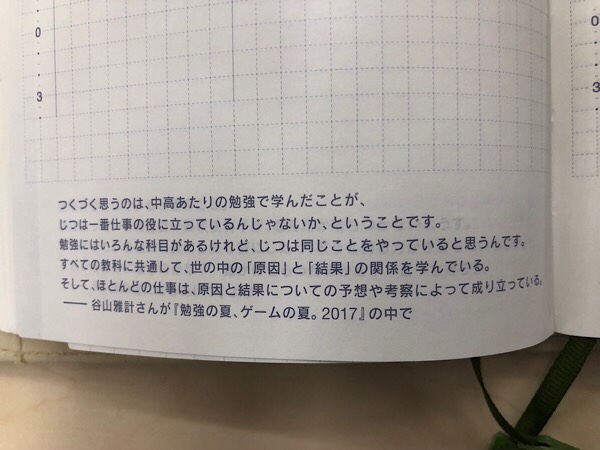 0
・
・
3
・
0
・
・
3
つくづく思うのは、中高あたりの勉強で学んだことが、
じつは一番仕事の役に立っているんじゃないか、ということです。
勉強にはいろんな科目があるけれど、じつは同じことをやっていると思うんです。
すべての教科に共通して、世の中の「原因」と「結果」の関係を学んでいる。
そして、ほとんどの仕事は、原因と結果についての予想や考察によって成り立っている。
―― 谷山雅計さんが『勉強の夏、ゲームの夏。2017』の中で